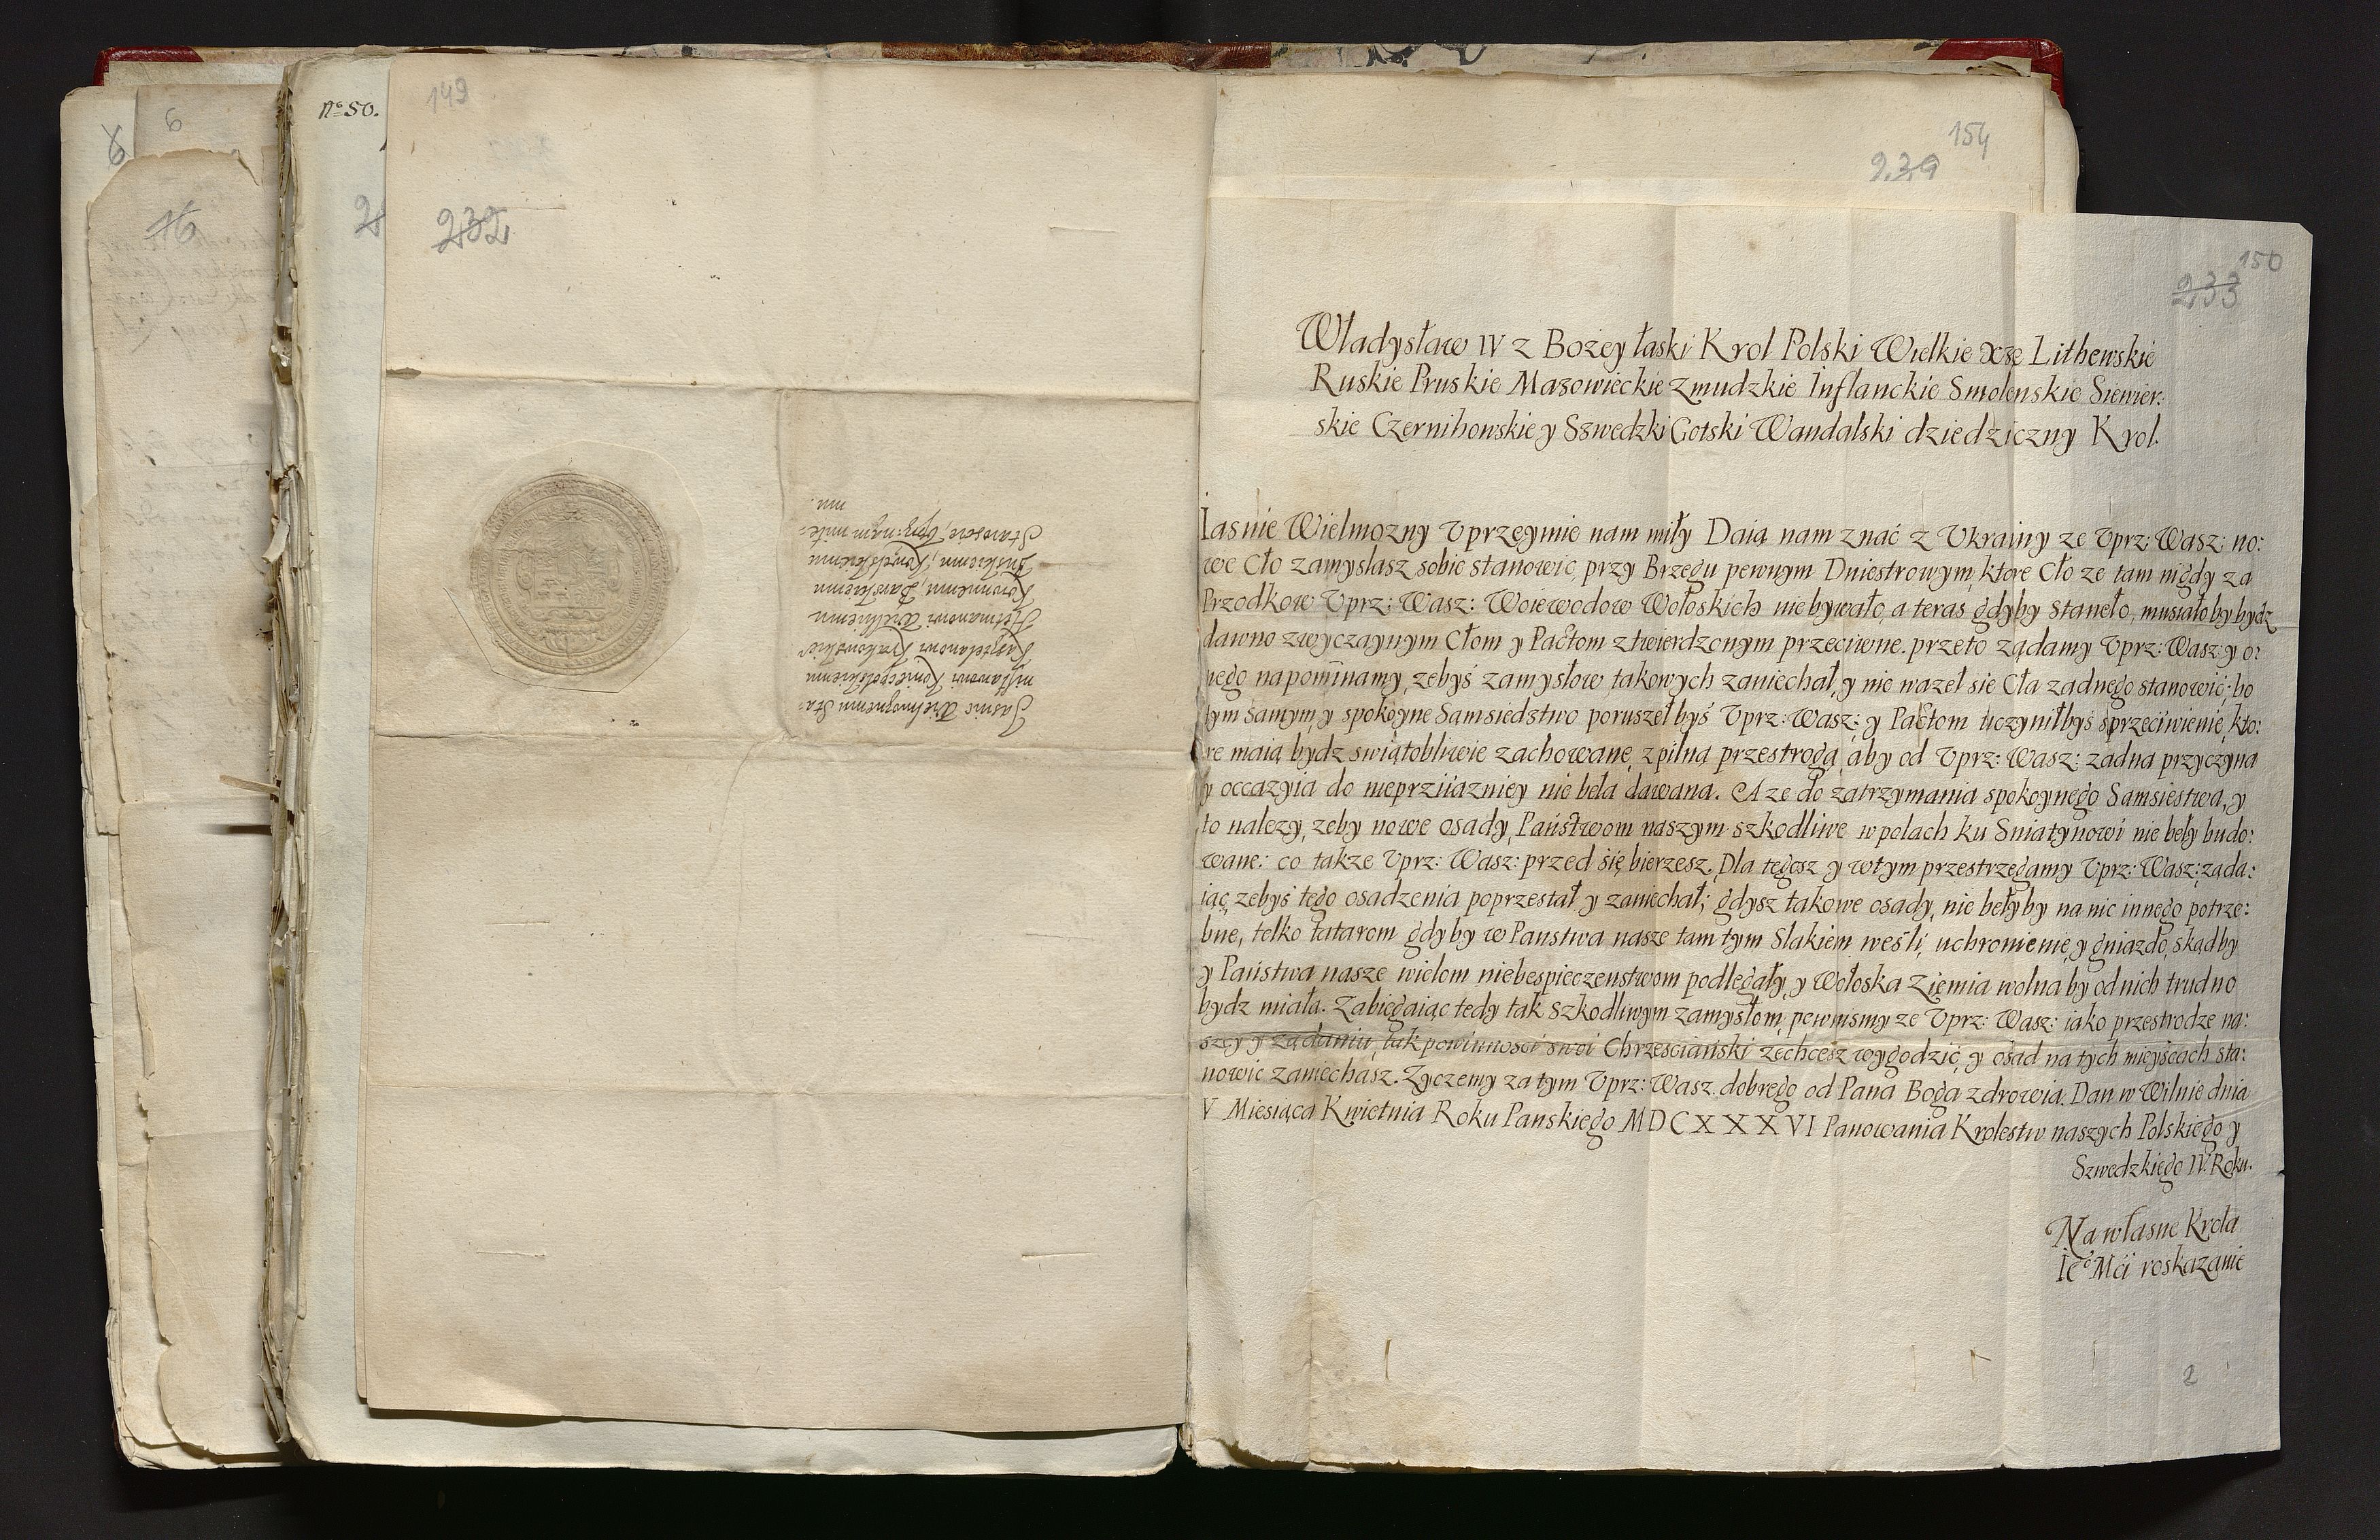 6
6
16
No 50.
149
232
Jasnie Wielmoznemu Sta:
nisławowi Koniecpolskiemu
Kasztelanowi Krakowskie°
Hetmanowi Wielkiemu
Koronnemu, Barskiemu
Buskiemu, Kowelskiemu
Staroscie, Vprz: nam miłe:
mu.
154
239
150
233
Władysław IV z Bozey łaski Krol Polski Wielkie Xze Lithewskie
Ruskie Pruskie Mazowieckie Zmudzkie Inflanckie Smolenskie Siewier:
skie Czernihowskie y Szwedzki Gotski Wandalski dziedziczny Krol.
Iasnie Wielmozny Vprzęymie nam miły Daią nam znać z Vkrainy ze Vprz: Wasz: no:
we Cło zamyslasz sobie stanowic, przy Brzegu pewnym Dniestrowym, ktore Cło ze tam nigdy za
Przodkow Vprz: Wasz: Woiewodow Wołoskich niebywało, a teras gdyby staneło, musiałoby bydz
dawno zwyczaynym Cłom y Pactom ztwierdzonym przeciwne. przeto ządamy Vprz: Wasz: y o:
nego napominamy, zebyś zamysłow takowych zaniechał, y nie wazeł sie Cła zadnego stanowić; bo
tym samym, y spokoyne Samsiedztwo poruszeł byś Vprz: Wasz: y Pactom uczyniłbyś sprzeciwienie, kto:
re maią bydz swiątobliwie zachowane, z pilną przestrogą, aby od Vprz: Wasz: zadna przyczyna
y occazyia do nieprziiazniey nie beła dawana. A ze do zatrzymania spokoynego Samsiestwa, y
to nalezy, zeby nowe osady, Państwom naszym szkodliwe w polach ku Sniatynowi nie beły budo:
wane: co takze Vprz: Wasz: przed się bierzesz. Dla tegosz y wtym przestrzegamy Vprz: Wasz: ząda:
iąc, zebyś tego osadzenia poprzestał y zaniechał; gdysz takowe osady, nie bełyby na nic innego potrze:
bne, telko tatarom gdyby w Panstwa nasze tam tym Slakiem weśli, uchronienie, y gniazdo, skądby
y Państwa nasze wielom niebespieczenstwom podlegały, y Wołoska Ziemia wolna by od nich trudno
bydz miała. Zabiegaiąc tedy tak szkodliwym zamysłom, pewnismy ze Vprz: Wasz: iako przestrodze na:
szey y ządaniu, tak powinnosci swoi Chrzesciański zechcesz wygodzić, y osad na tych mieyscach sta:
nowic zaniechasz. Zyczemy za tym Vprz: Wasz. dobrego od Pana Boga zdrowia. Dan w Wilnie dnia
V Miesiąca Kwietnia Roku Panskiego MDCXXXVI Panowania Krolestw naszych Polskiego y
Szwedzkiego IV. Roku.
Na własne Krola
Ie° Mći roskazanie
2